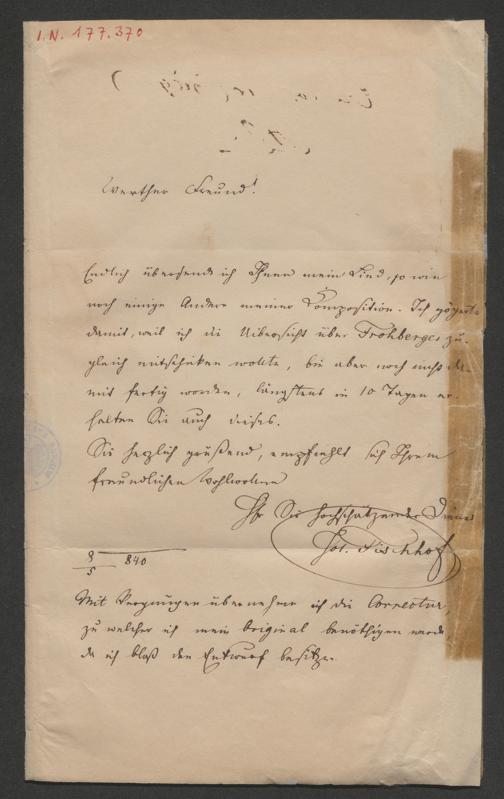 I.N. 177.370
Werther Freund!
Endlich übersende ich Ihnen mein Lied, so wie
noch einige Andere meiner Composition. Ich zögerte
damit, weil ich die Uibersicht über Frohberger zu-
gleich mitschicken wollte, bin aber noch nicht da-
mit fertig worden, längstens in 10 Tagen er-
halten Sie auch dieses.
Sie herzlich grüßend, empfiehlt sich Ihrem
freundlichen Wohlwollen
Ihr Sie hochschätzender Diener
Jos. Fischhof
9/5 840
Mit Vergnügen übernehme ich die Correctur,
zu welcher ich mein Original benöthigen werde,
da ich bloß den Entwurf besitze.